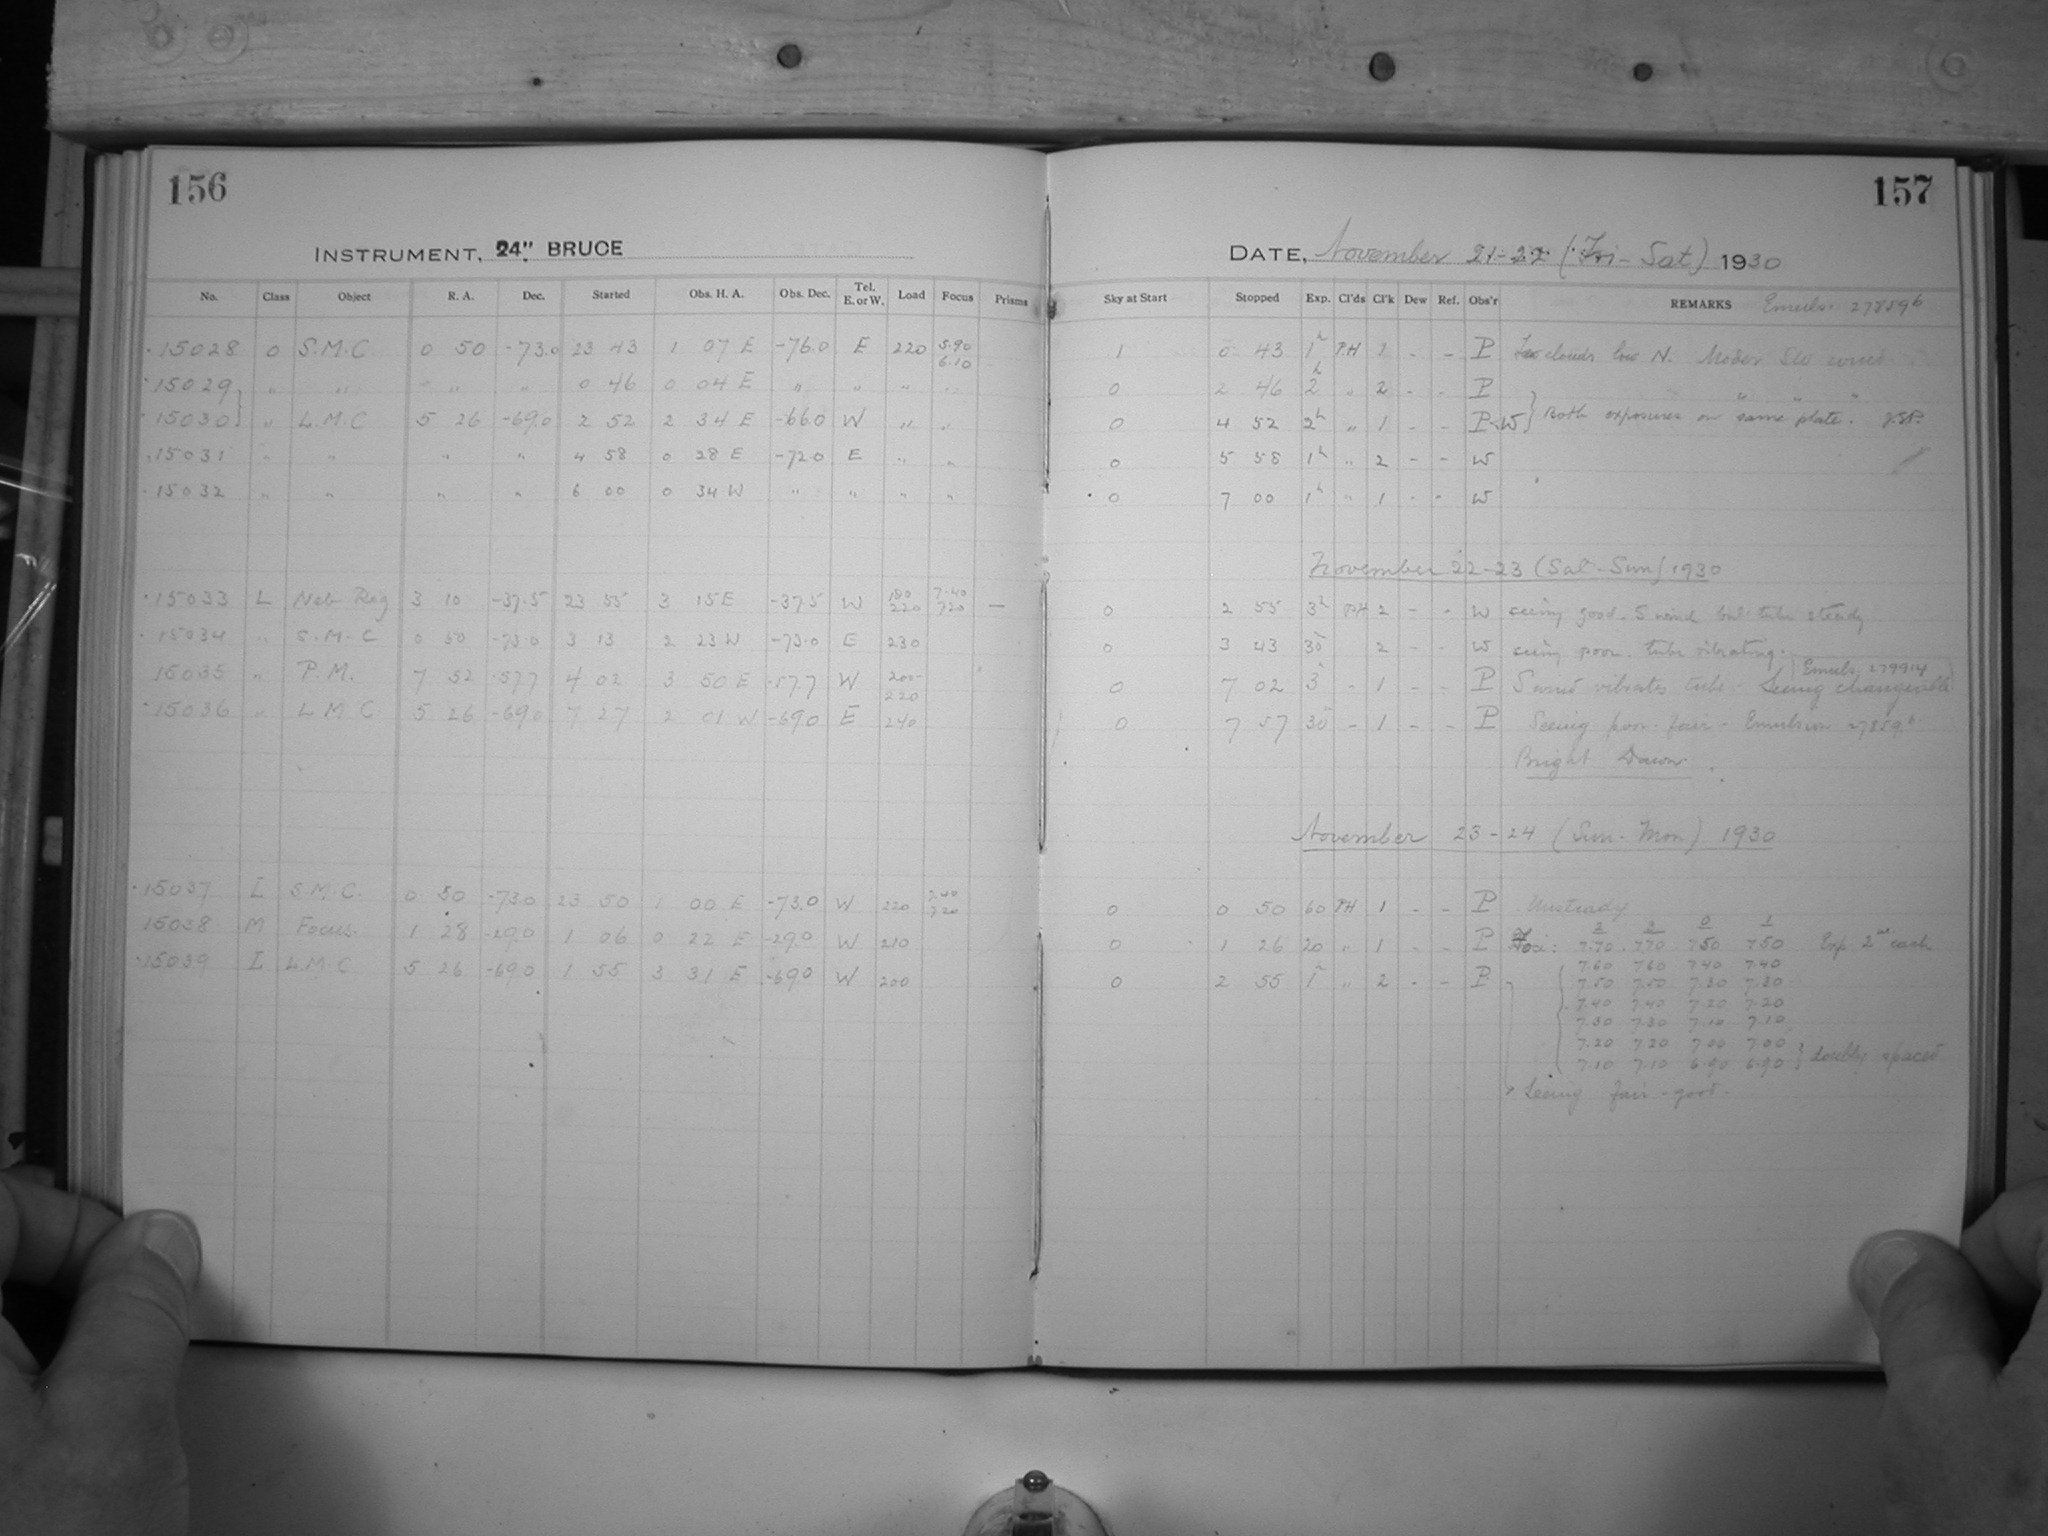 156
INSTRUMENT, 24" BRUCE
No. Class Object R. A. Dec. Started Obs. H. A. Obs. Dec. Tel. E. or W. Load Focus Prisms
15028 O S.M.C. 0 50 -73.0 23 43 1 07 E -76.0 E 220 5.90 6.10
15029 " " " " " 0 46 0 04 E " " " "
15030 " L.M.C 5 26 -69.0 2 52 2 34 E -66.0 W " "
15031 " " " " 4 58 0 28 E -72.0 E " "
15032 " " " " 6 00 0 34 W " " " "
15033 L Neb Reg 3 10 -37.5 23 55 3 15 E -37.5 W 180 220 7.40 7.20 —
15034 " S.M.C 0 50 -73.0 3 13 2 23 W -73.0 E 230
15035 " P.M. 7 52 -57.7 4 02 3 50 E -57.7 W 200- 220
15036 " L M C 5 26 -69.0 7 27 2 01 W -69.0 E 240
15037 I S.M.C. 0 50 -73.0 23 50 1 00 E -73.0 W 220 7.20
15038 M Focus. 1 28 -29.0 1 06 0 22 E -29.0 W 210
15039 I L.M.C 5 26 -69.0 1 55 3 31 E -69.0 W 200
157
DATE, November 21-22 (Fri-Sat) 1930
Sky at Start Stopped Exp. Cl'ds Cl'k Dew Ref. Obs'r REMARKS Emuls. 27859b
1 0 43 1h P.H 1 - - P clouds low N. Moder
0 2 46 2h " 2 - - P " " "
0 4 52 2h " 1 - - P-W } Both exposures on same plate. J.S.P.
0 5 58 1h " 2 - - W
0 7 00 1h " 1 - - W
November 22-23 (Sat-Sun) 1930
0 2 55 3h P.H 2 - - W seeing good. S wind but tube steady
0 3 43 30m 2 - - W seeing poor. tube vibrating.
Emuls. 279914
0 7 02 3h - 1 - - P S wind vibrates tube. Seeing changeable
0 7 57 30m - 1 - - P Seeing poor-fair - Emulsion 27859b
Bright Dawn.
November 23-24 (Sun-Mon) 1930
0 0 50 60 P.H 1 - - P Unsteady
2 2 0 1
0 1 26 20 " 1 - - P Foci: 7.70 7.70 7.50 7.50 Exp. 2m each
7.60 7.60 7.40 7.40
0 2 55 1h " 2 - - P 7.50 7.50 7.30 7.30
7.40 7.40 7.20 7.20
7.30 7.30 7.10 7.10
7.20 7.20 7.00 7.00
7.10 7.10 6.90 6.90 } doubly spaced
Seeing fair-good.